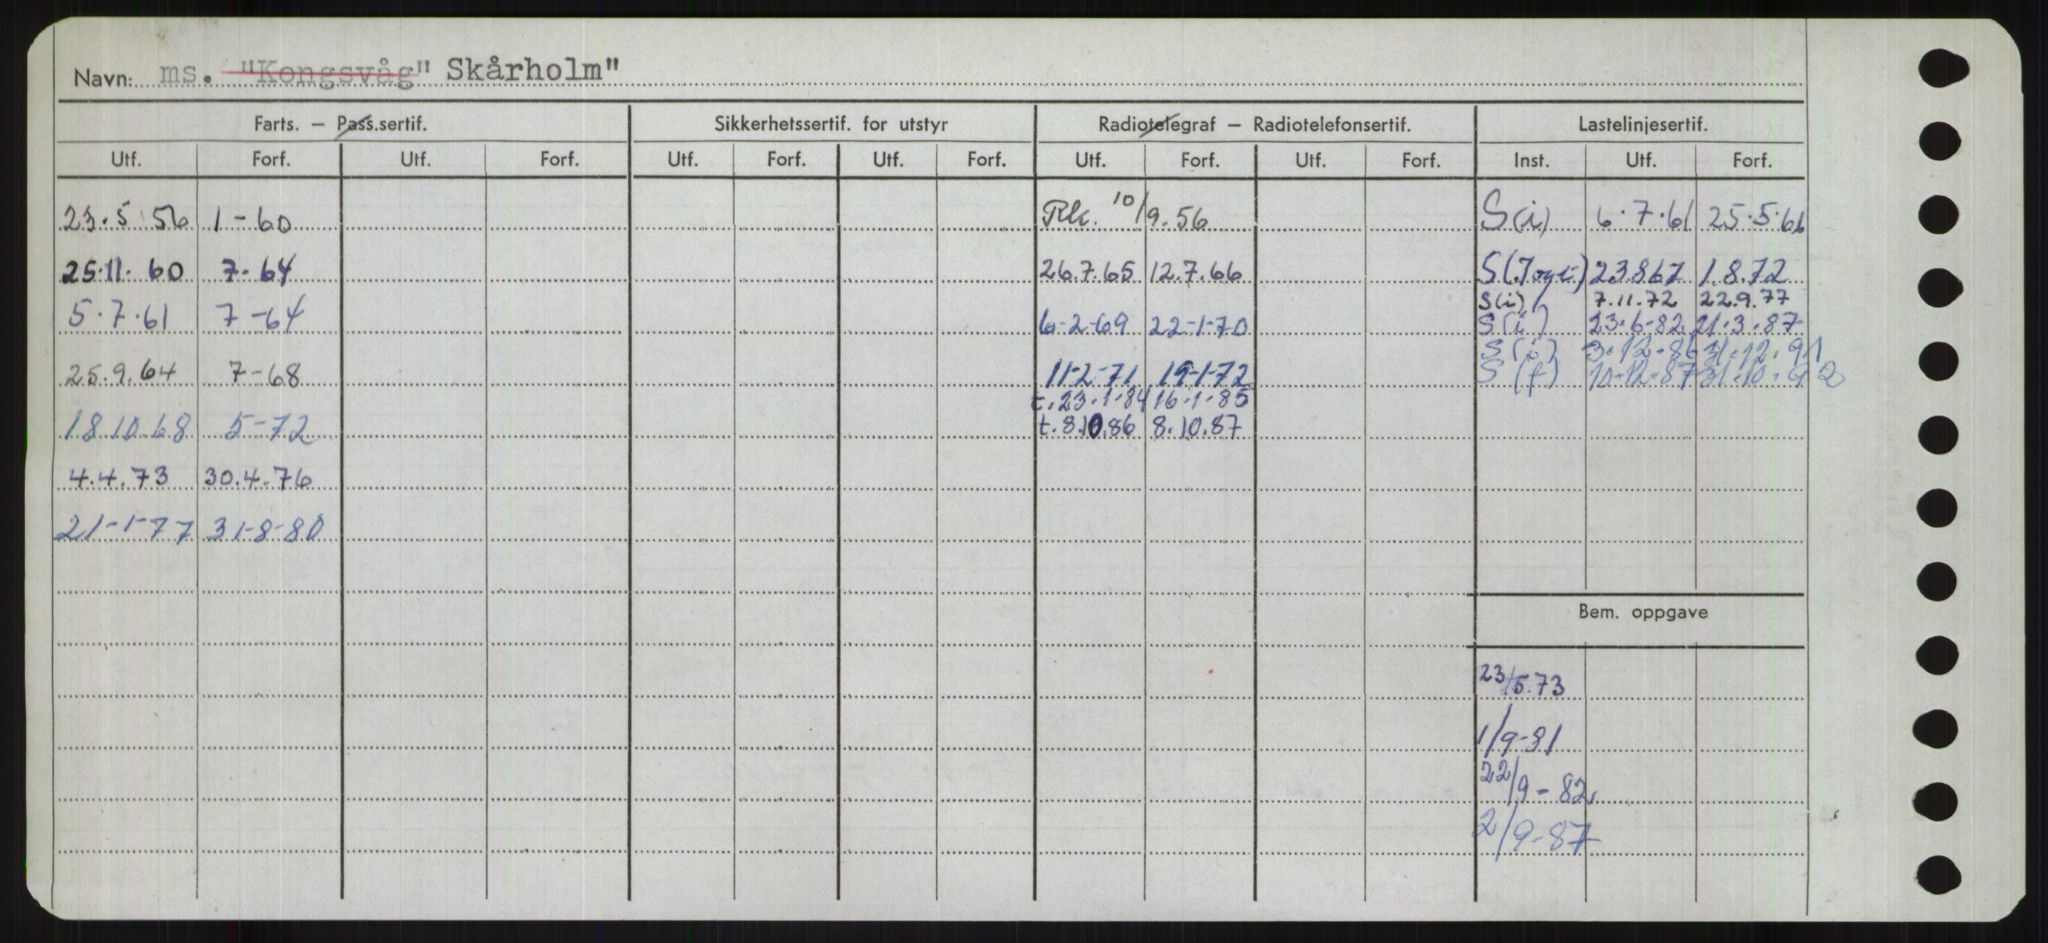 Navn: ms. "Kongsvåg" Skårholm"
Farts. – Pass.sertif. Sikkerhetssertif. for utstyr Radiotelegraf – Radiotelefonsertif. Lastelinjesertif.
Utf. Forf. Utf. Forf. Utf. Forf. Utf. Forf. Utf. Forf. Utf. Forf. Inst. Utf. Forf.
23.5 56 1-60 Rk. 10/9.56 S(i) 6.7.61 25.5.66
25.11.60 7-64 26.7.65 12.7.66 S( 23.8.67 1.8.72
S(i) 7.11.72 22.9.77
5.7.61 7-64 6-2-69 22-1-70 S(i) 23.6-82 21.3.87
S(i) 3.12-86 31.12.91
25.9.64 7-68 11-2-71 19-1-72 S(f) 10-12-87 31.10.92
t.23.1.84 16.1.85
18.10.68 5-72 t.8.10.86 8.10.87
4.4.73 30.4.76
21-1-77 31-8-80
Bem. oppgave
23/5.73
1/9-81
22/9-82
2/9-87